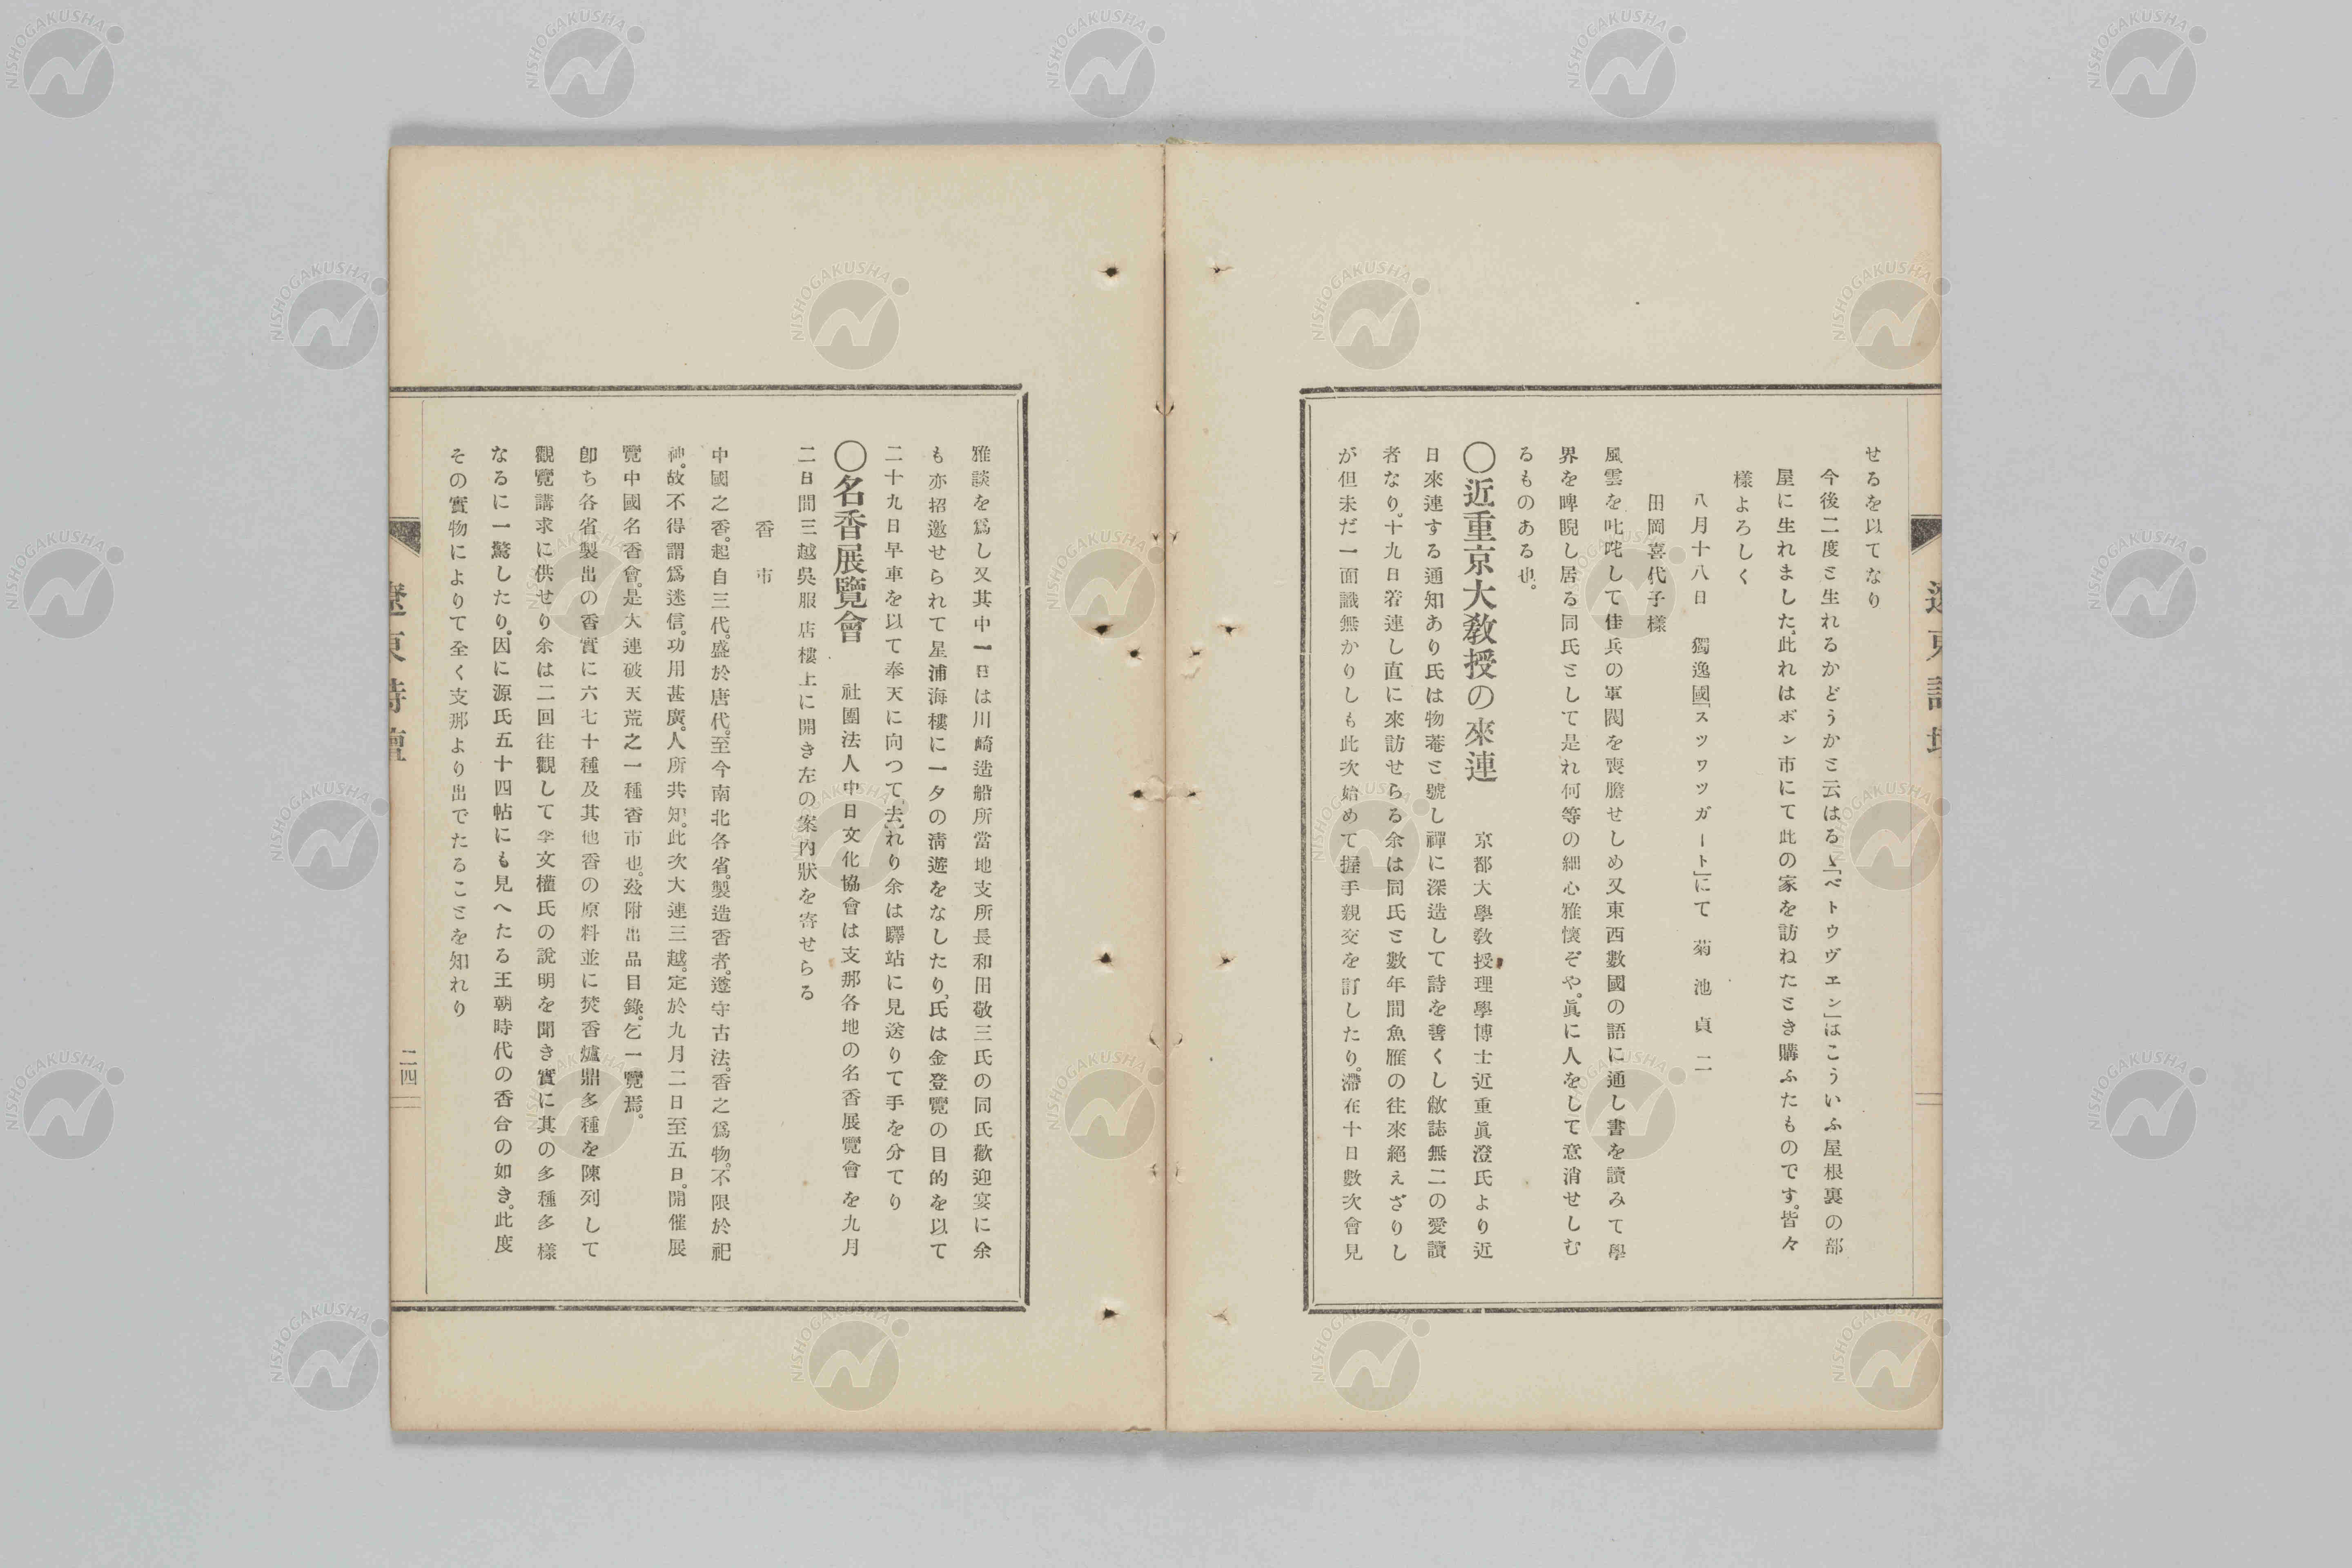 せるを以てなり
今後二度と生れるかどうかと云はるゝ「ベトウヴエン」はこういふ屋根裏の部
屋に生れました、此れはボン市にて此の家を訪ねたとき購ふたものです。皆々
樣よろしく
八月十八日　獨逸國「スツワツガート」にて　菊池貞二
田岡喜代子樣
風雲を叱咤して佳兵の軍閥を喪膽せしめ又東西數國の語に通し書を讀みて學
界を睥睨し居る同氏として是れ何等の細心雅懷ぞや。眞に人をして意消せしむ
るものある也。
〇近重京大敎授の來連　京都大學敎授理學博士近重眞澄氏より近
日來連する通知あり氏は物菴と號し禪に深造して詩を善くし敝誌無二の愛讀
者なり。十九日若連し直に來訪せらる余は同氏と數年間魚雁の往來絕えざりし
が但未だ一面識無かりしも此次始めて握手親交を訂したり。滯在十日數次會見
遼東詩壇
雅談を爲し又其中一日は川崎造船所當地支所長和田敬三氏の同氏歡迎宴に余
も亦招邀せられて星浦海樓に一夕の淸遊をなしたり、氏は金登覽の目的を以て
二十九日早車を以て奉天に向つて去れり余は驛站に見送りて手を分てり
〇名香展覽會　社團法人中日文化協會は支那各地の名香展覽會を九月
二日間三越吳服店樓上に開き左の案內狀を寄せらる
香市
中國之香。起自三代。盛於唐代。至今南北各省。製造香者。遵守古法。香之爲物。不限於祀
神。故不得謂爲迷信。功用甚廣。人所共知。此次大連三越。定於九月二日至五日。開催展
覽中國名香會。是大連破天荒之一種香市也。茲附出品目錄。乞一覽焉。
卽ち各省製出の香實に六七十種及其他香の原料並に焚香爐鼎多種を陳列して
觀覽講求に供せり余は二回往觀して李文權氏の說明を聞き實に其の多種多樣
なるに一驚したり。因に源氏五十四帖にも見へたる王朝時代の香合の如き。此度
その實物によりて全く支那より出でたることを知れり
遼東詩壇
二四